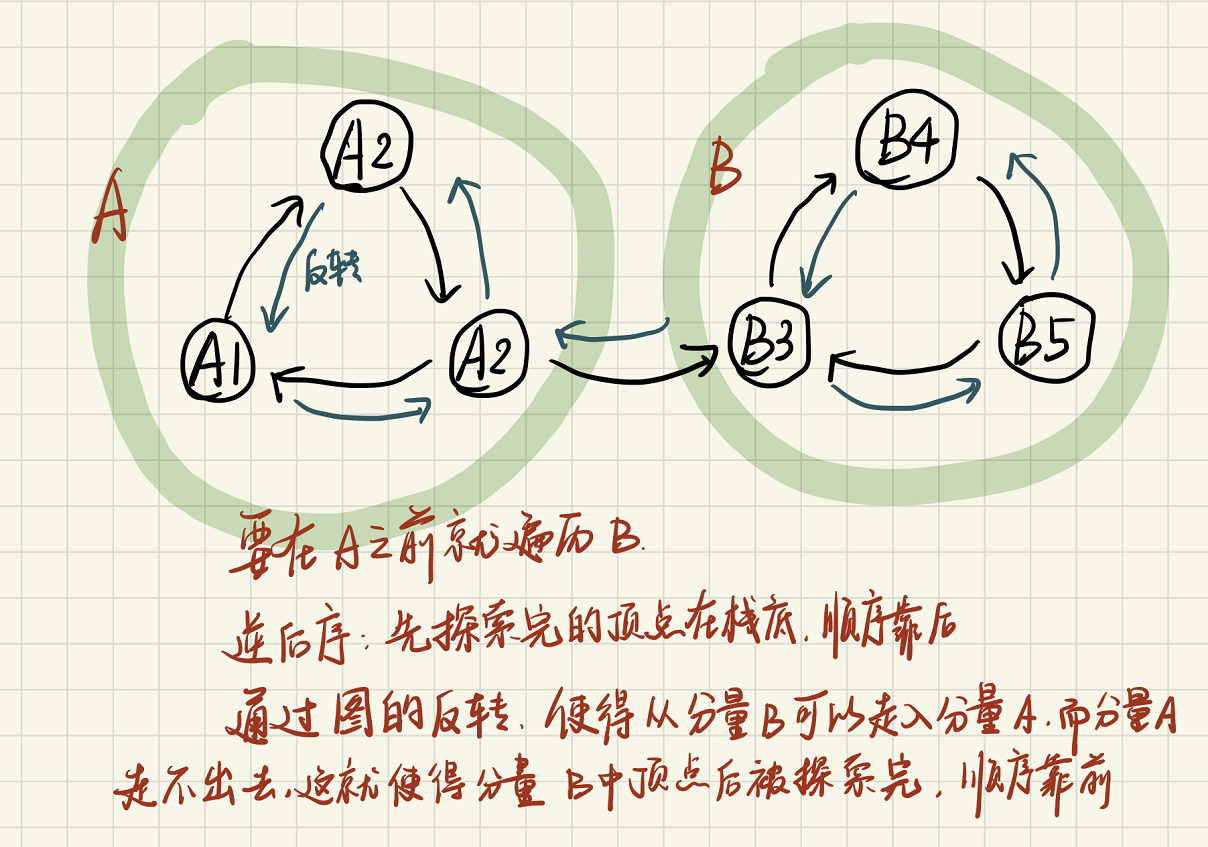 A2
B4
B
A
反转
A1
A2
B3
B5
要在A之前就遍历B.
逆后序：先探索完的顶点在栈底，顺序靠后
通过图的反转，使得从分量B可以走入分量A，而分量A
走不出去，这就使得分量B中顶点后被探索完，顺序靠前